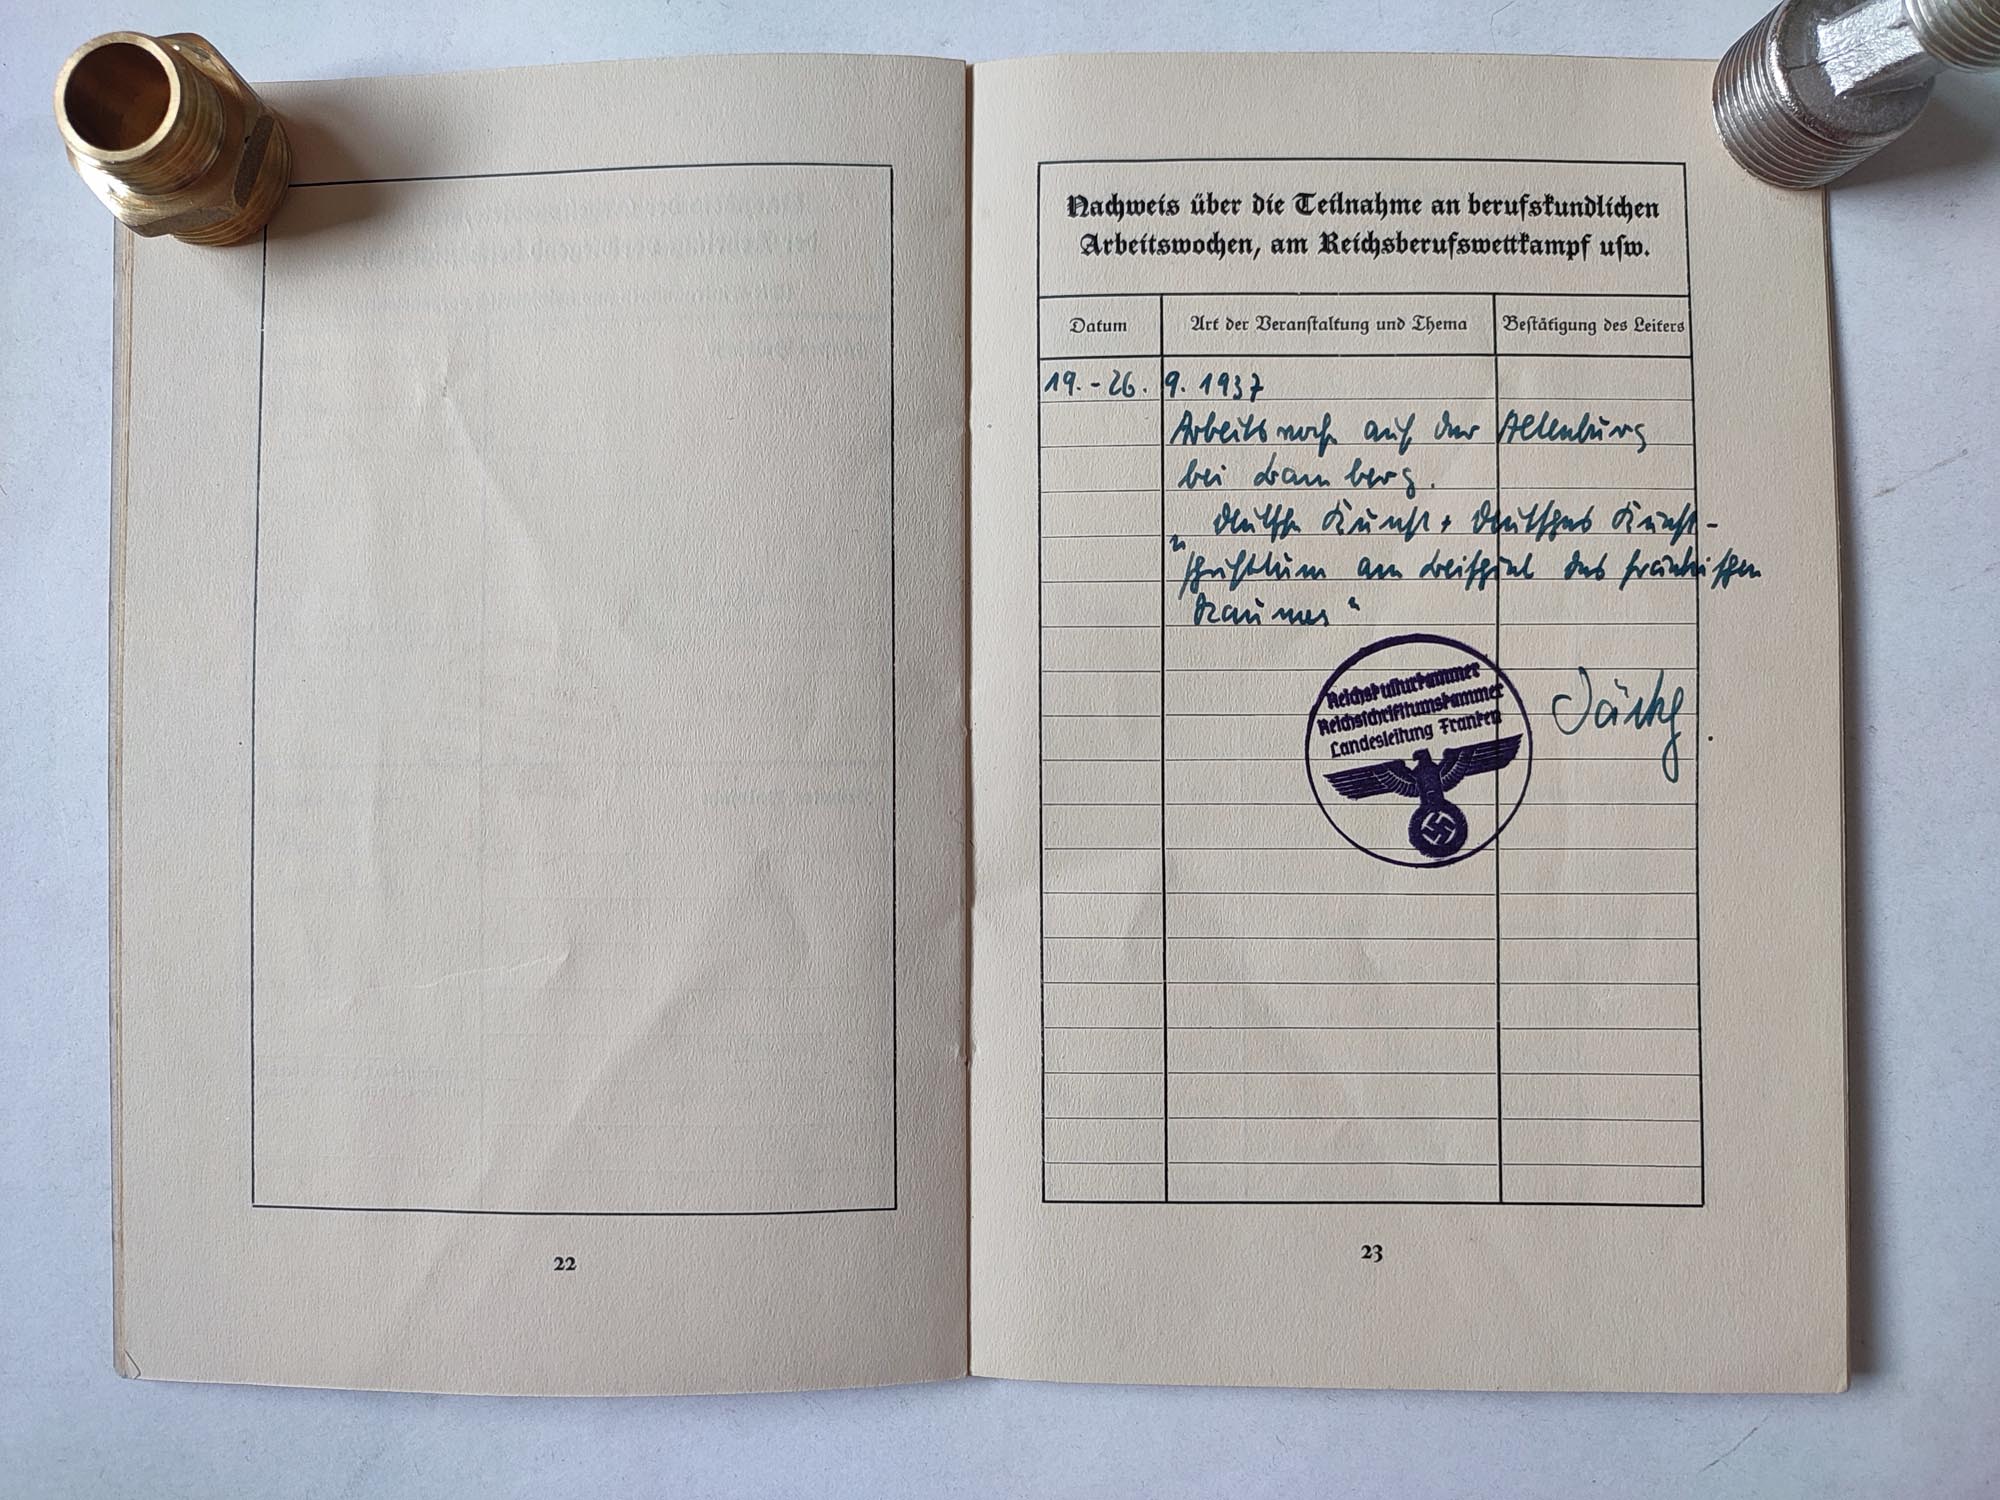 Nachweis über die Teilnahme an berufskundlichen
Arbeitswochen, am Reichsberufswettkampf usw.
Datum Art der Veranstaltung und Thema Bestätigung des Leiters
19. - 26. 9. 1937
Arbeitswoche auf der Altenburg
bei Bamberg.
"Deutsche Kunst + Deutsches Kunst-
schrifttum am Beispiel des fränkischen
Raumes"
Reichskulturkammer
Reichsschrifttumskammer
Landesleitung Franken
22
23